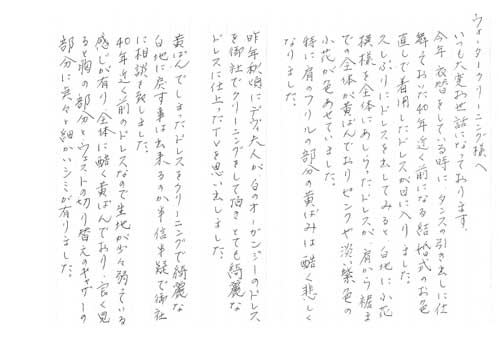 ウォータークリーニング様へ
いつも大変お世話になっております。
今年衣替をしている時に、タンスの引き出しに仕
舞ておいた40年近く前になる結婚式のお色
直しで着用したドレスが目に入りました。
久しぶりにドレスを出してみると、白地に小花
模様を全体にあしらったドレスが、肩から裾ま
での全体が黄ばんでおりピンクや淡い紫色の
小花が色あせていました。
特に肩のフリルの部分の黄ばみは酷く悲しく
なりました。
昨年秋頃にデヴィ夫人が白のオーガンジーのドレス
を御社でクリーニングをして頂きとても綺麗な
ドレスに仕上ったTVを思い出しました。
黄ばんでしまったドレスをクリーニングで綺麗な
白地に戻す事は出来るのか半信半疑で御社
に相談を致しました。
40年近く前のドレスなので生地が少々弱っている
感じが有り、全体に酷く黄ばんでおり、良く見
ると胸の部分とウェストの切り替えのギャザーの
部分に点々と細かいシミが有りました。